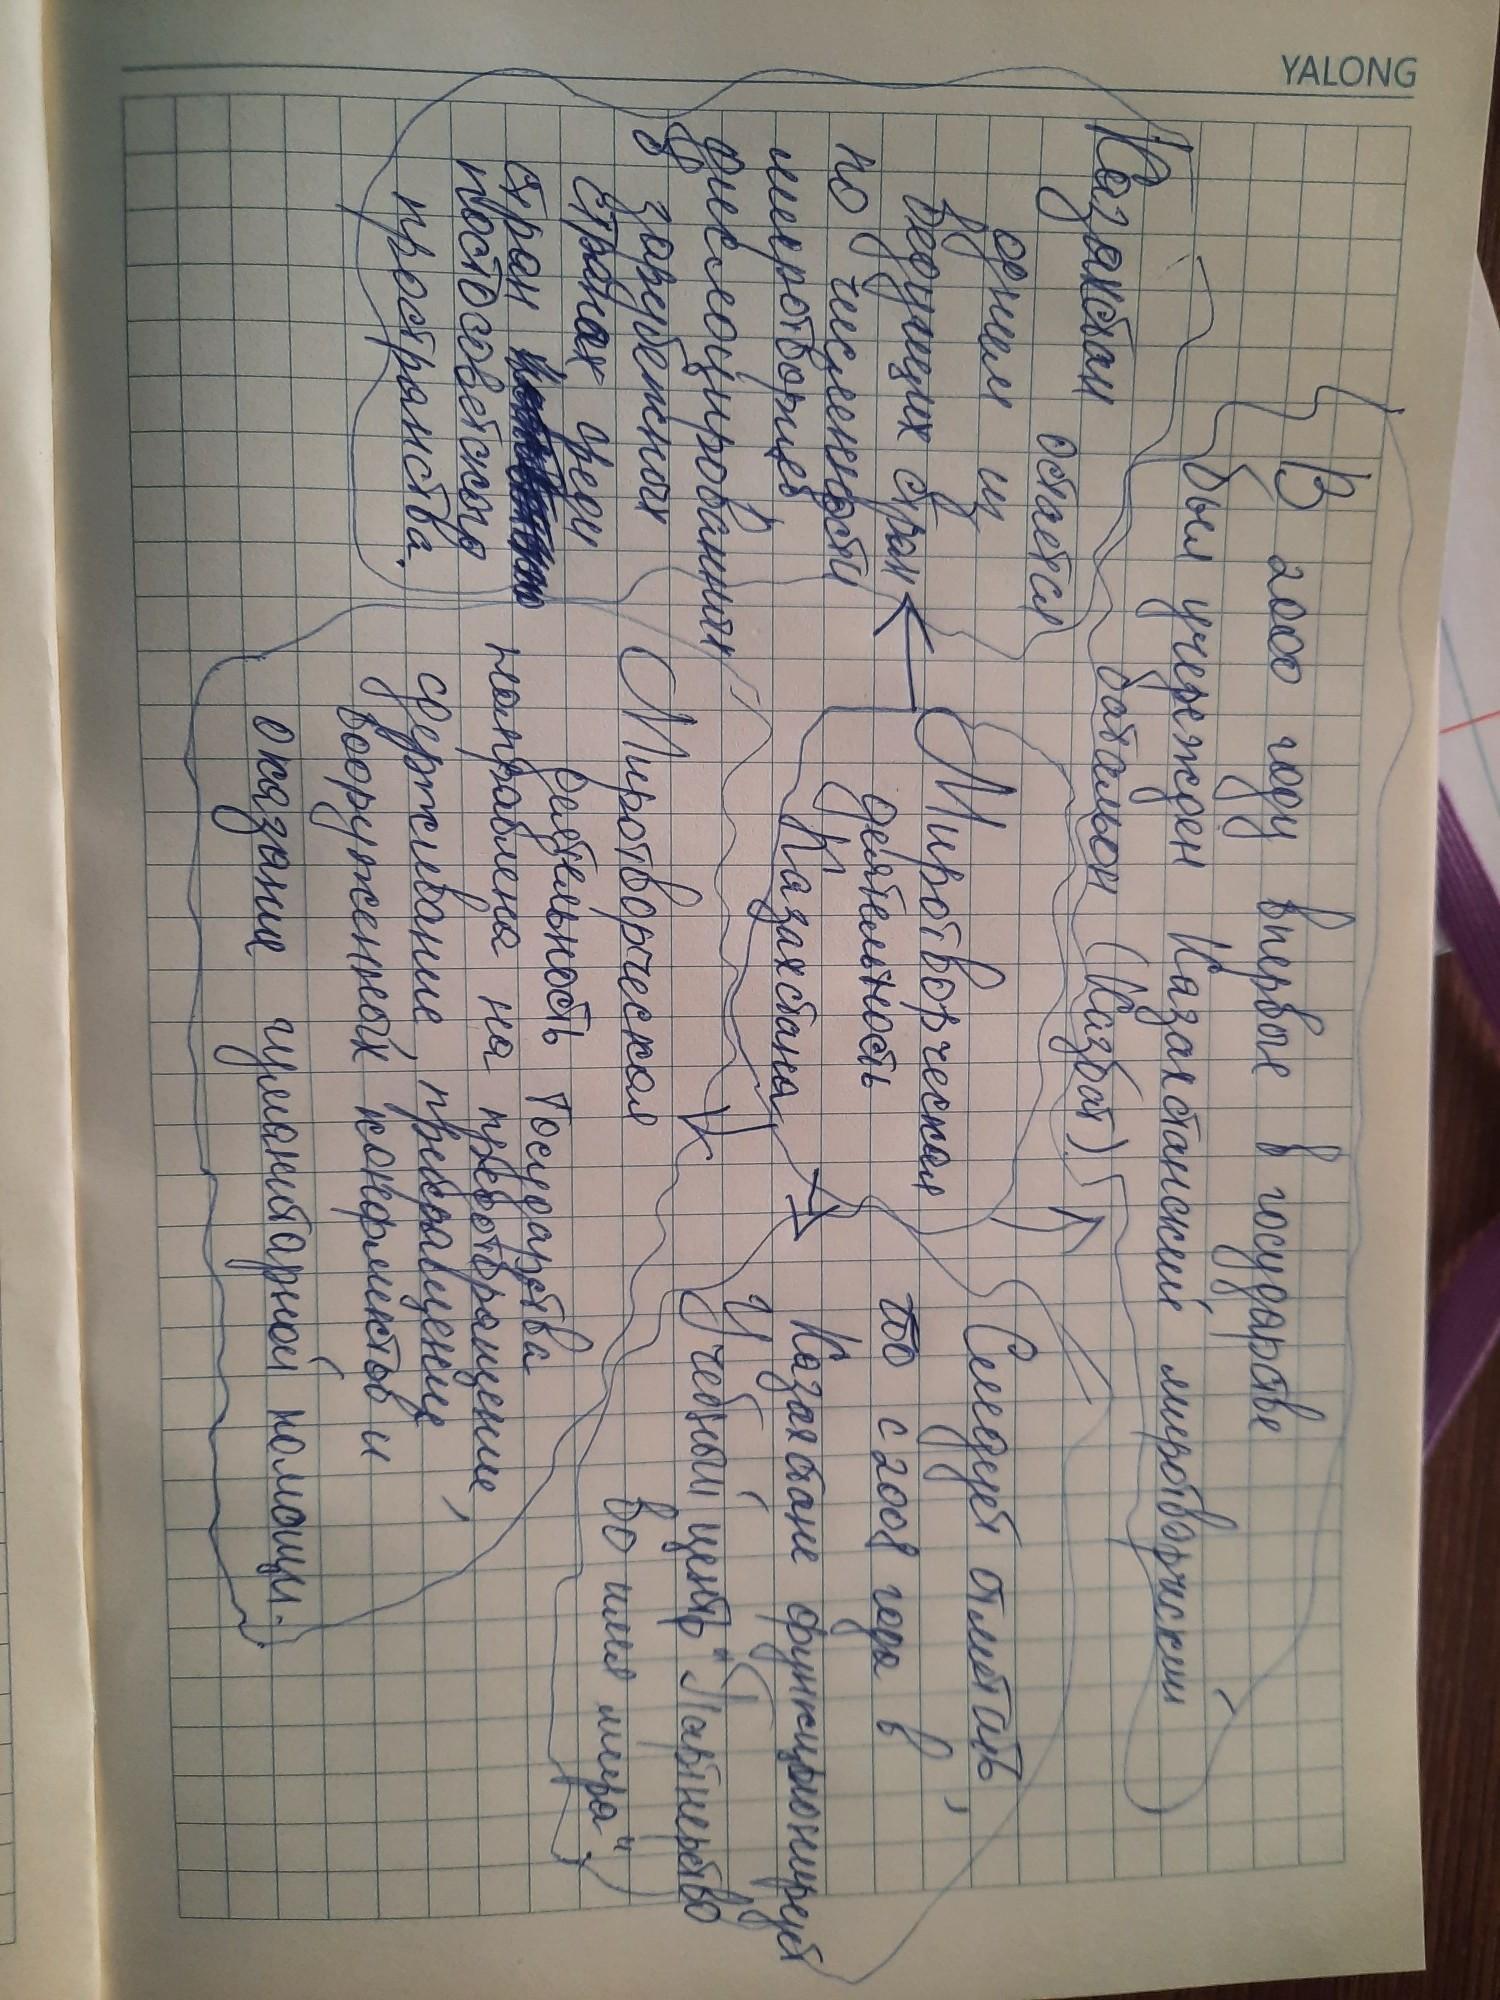 YALONG
В 2000 году впервые в государстве
был учережден Казахстанский миротворчиский
батальон (Казбат)
Казахстан
остается
одним из
ведущих стран
по численности
миротворцев
дислоцированных
в зарубежных
странах среди
стран
постсоветского
пространства.
Миротворческая
деятельность
Казахстана
Следует отметить,
что с 2008 года в
Казахстане функционирует
Учебный центр "Партнерство
во имя мира"
Миротворческая
деятельность государства
направлена на предотвращение,
сдерживание, прекращение
вооруженных конфликтов и
оказание гуманитарной помощи.